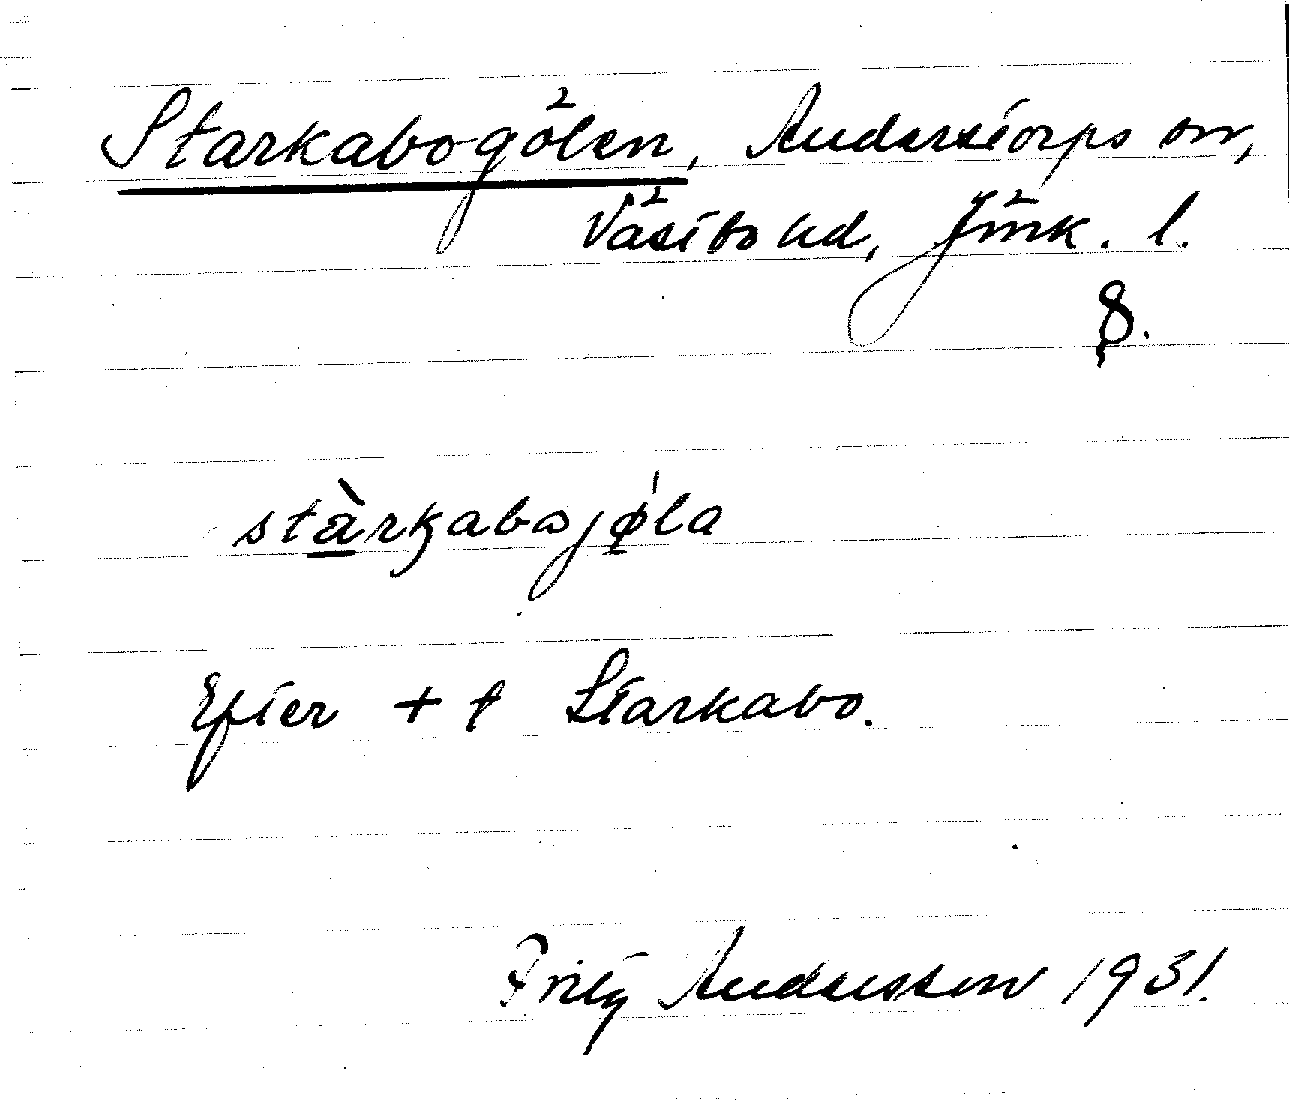 Starkabogölen, Anderstorps sn,
Västbo hd, Jönk. l.
8.
stàrkabojø̀la
Efter + t Starkabo.
Fritz Andersson 1931.